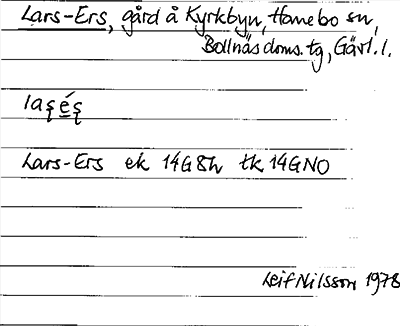 Lars-Ers, gård å Kyrkbyn, Hanebo sn,
Bollnäs doms. tg, Gävl. l.
laşéş
Lars-Ers ek 14G8h tk 14GNO
Leif Nilsson 1978